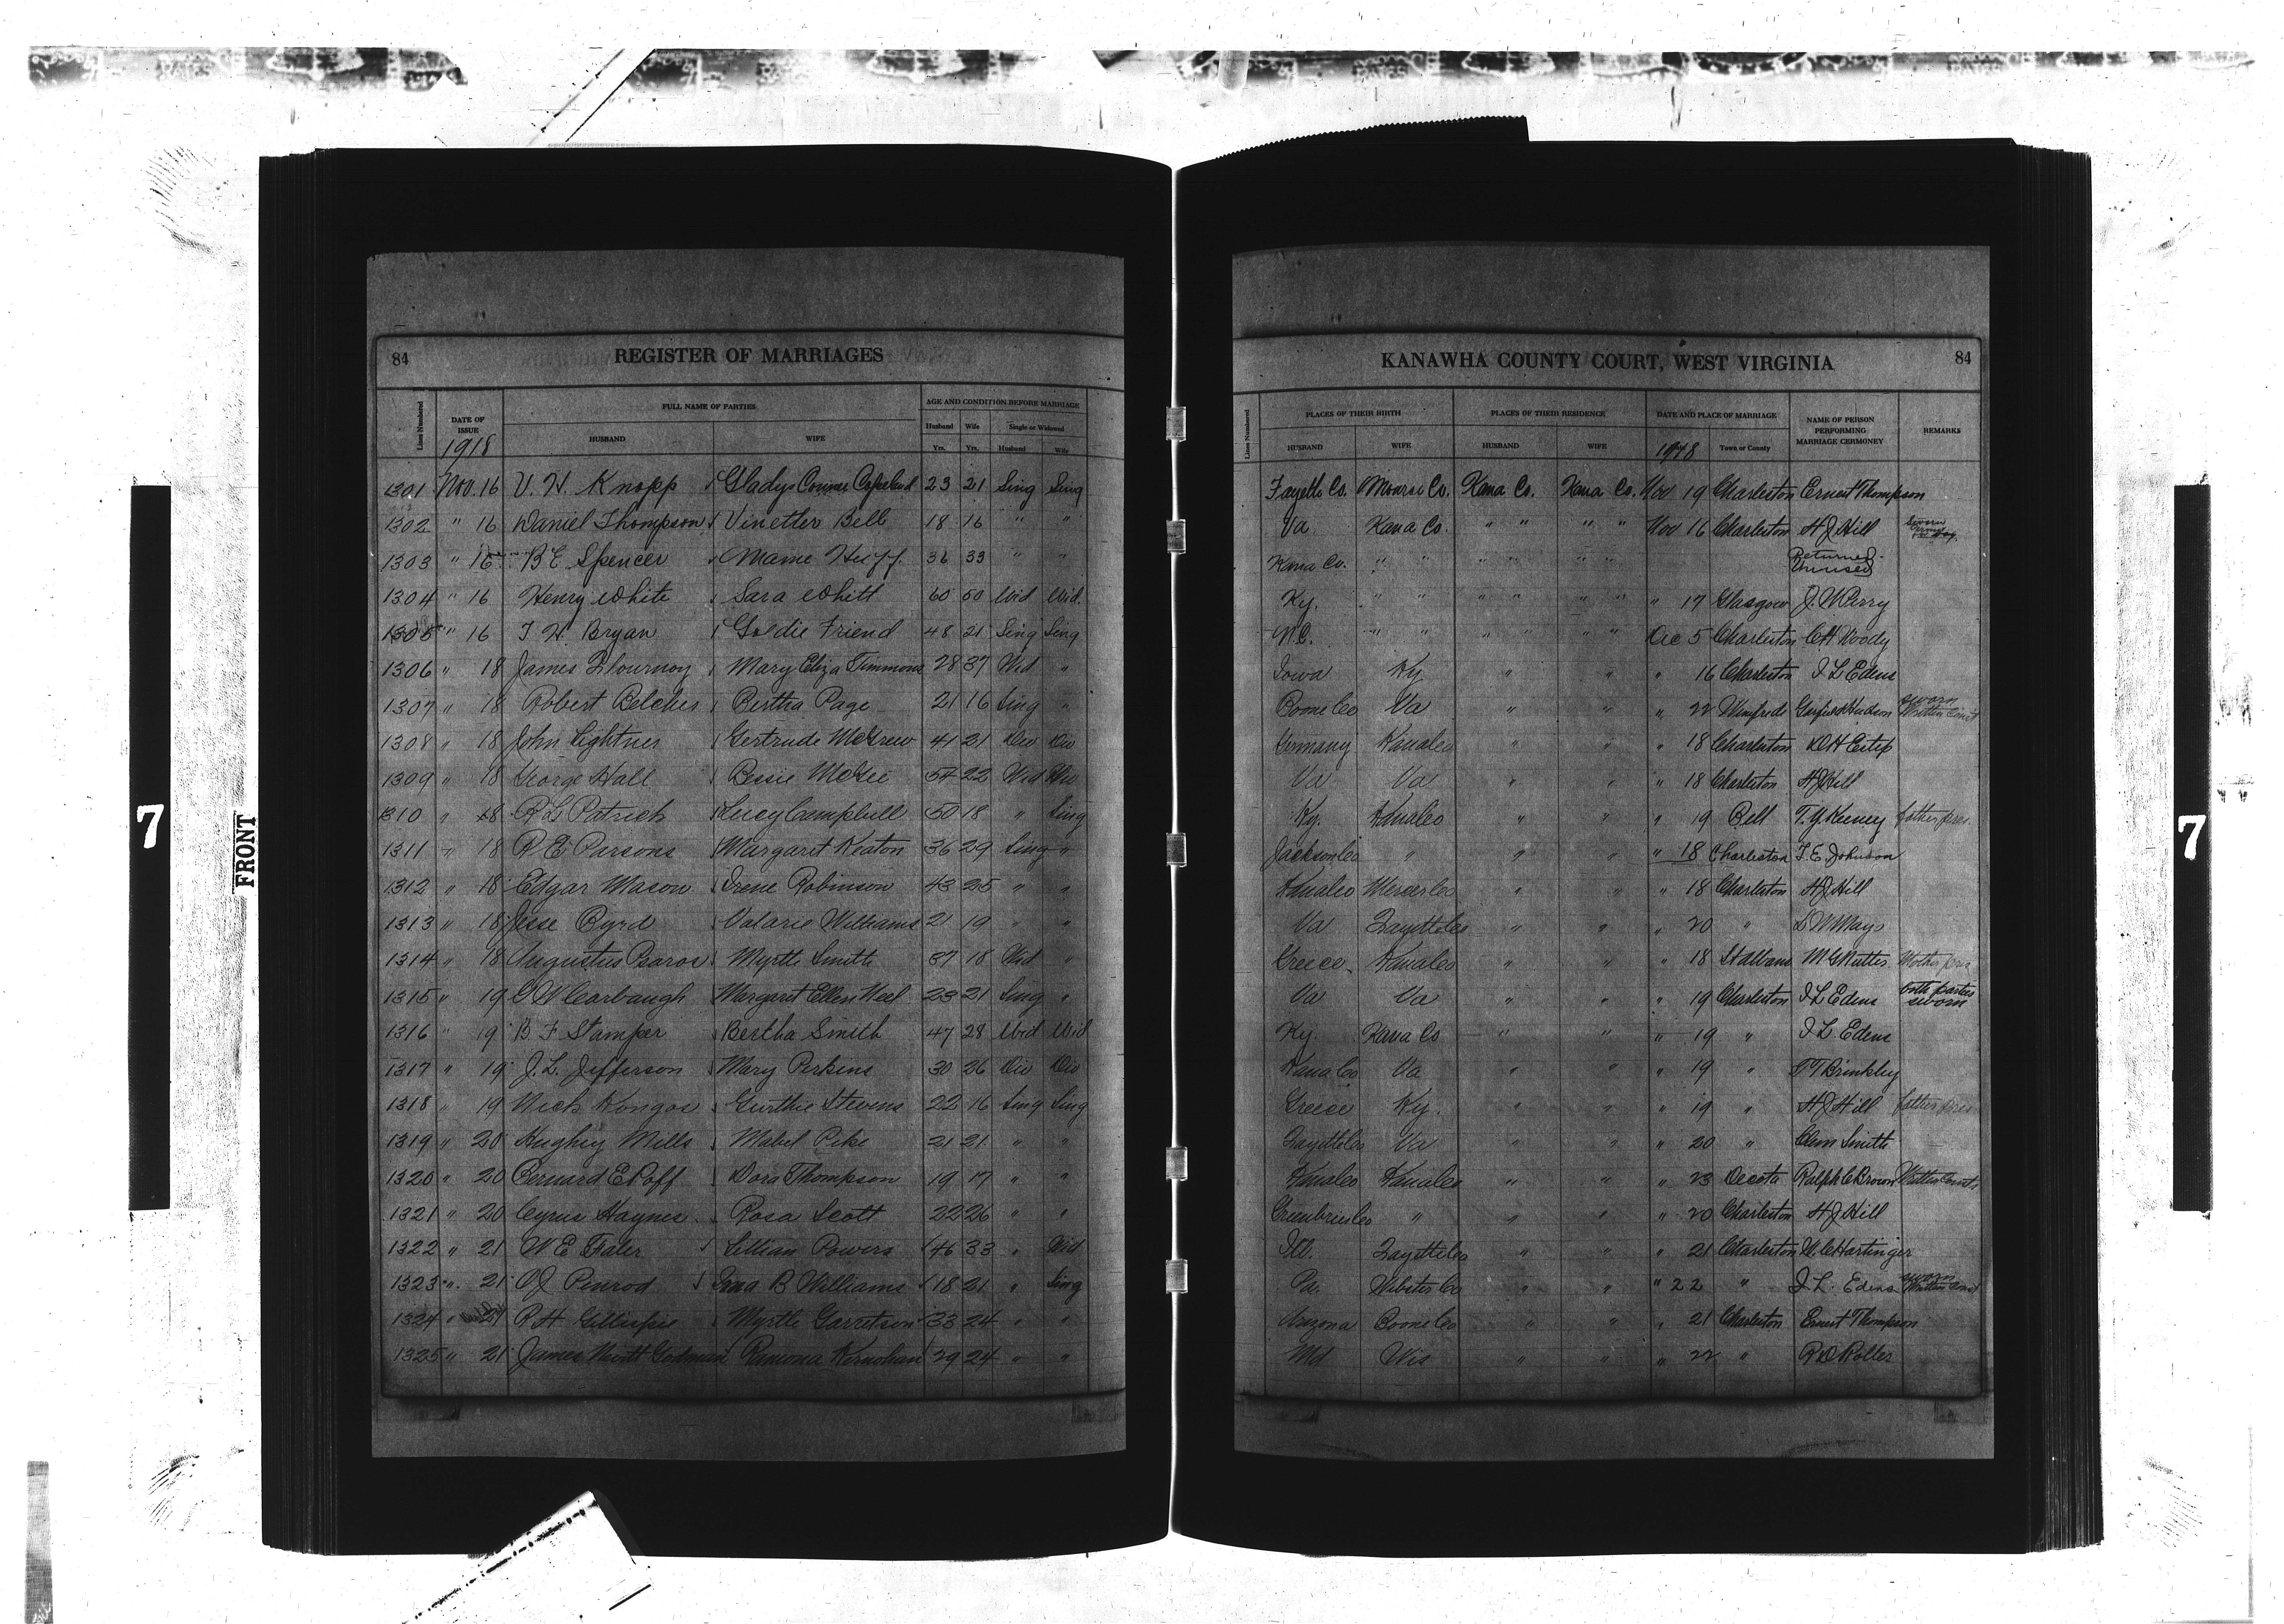 84 REGISTER OF MARRIAGES
Lines Numbered DATE OF ISSUE FULL NAME OF PARTIES AGE AND CONDITION BEFORE MARRIAGE
HUSBAND WIFE Husband Wife Single or Widowed
1918 Yrs. Yrs. Husband Wife
1301 Nov. 16 V. H. Knopp Gladys Copeland 23 21 Sing Sing
1302 " 16 Daniel Thompson Vinetter Bell 18 16 " "
1303 " 16 B E Spencer Mame Huff 36 33 " "
1304 " 16 Henry White Sara Whitt 60 50 Wid Wid.
1305 " 16 T H Bryan Goldie Friend 48 21 Sing Sing
1306 " 18 James Flournoy Mary Eliza Timmons 28 37 Wid "
1307 " 18 Robert Belcher Bertha Page 21 16 Sing "
1308 " 18 John Lightner Gertrude McGrew 41 21 Div Div
1309 " 18 George Hall Bessie McGee 54 22 Wid Div
1310 " 18 R L Patrick Lucy Campbell 50 18 " Sing
1311 " 18 R E Parsons Margaret Keaton 36 29 Sing "
1312 " 18 Edgar Mason Irene Robinson 43 25 " "
1313 " 18 Jesse Byrd Valarie Williams 21 19 " "
1314 " 18 Augustus Psaros Myrtle Smith 37 18 Wid "
1315 " 19 G W Carbaugh Margaret Ellen Neel 23 21 Sing "
1316 " 19 B F Stamper Bertha Smith 47 28 Wid Wid
1317 " 19 J. L. Jefferson Mary Perkins 30 26 Div Div
1318 " 19 Nick Kongos Gurthie Stevens 22 16 Sing Sing
1319 " 20 Hughey Mills Mabel Pike 21 21 " "
1320 " 20 Bernard E Poff Dora Thompson 19 17 " "
1321 " 20 Cyrus Haynes Rosa Scott 22 26 " "
1322 " 21 W E Frater Lillian Powers 46 33 " Wid
1323 " 21 O J Penrod Erma B Williams 18 21 " Sing
1324 " 21 R H Gillispie Myrtle Garretson 33 24 " "
1325 " 21 James Godman Ramona Kernohan 29 24 " "
KANAWHA COUNTY COURT, WEST VIRGINIA 84
Lines Numbered PLACES OF THEIR BIRTH PLACES OF THEIR RESIDENCE DATE AND PLACE OF MARRIAGE NAME OF PERSON PERFORMING MARRIAGE CERMONEY REMARKS
HUSBAND WIFE HUSBAND WIFE 1918 Town or County
Fayette Co. Monroe Co. Kana Co. Kana Co. Nov 19 Charleston Ernest Thompson
Va Kana Co. " " " " Nov 16 Charleston H J Hill Sworn
Kana Co. " " " " " " Returned Unused
Ky. " " " " " " " 17 Glasgow J. W Perry
N.C. " " " " " " Dec 5 Charleston C H Woody
Iowa Ky " " " 16 Charleston I L Edens
Boone Co Va " " " 22 Winifrede Garfield Hudson sworn Written Consent
Germany Kana Co " " " 18 Charleston D H Estep
Va Va " " " 18 Charleston H J Hill
Ky. Kana Co " " " 19 Bell T. Y. Keeney father pres.
Jackson Co " " " " 18 Charleston T. E. Johnson
Kana Co Mercer Co " " " 18 Charleston H J Hill
Va Fayette Co " " " 20 " D W Mays
Greece Kana Co " " " 18 St Albans M G Nutter Mother pres
Va Va " " " 19 Charleston I L Edens both parties sworn
Ky. Kana Co " " " 19 " I L Edens
Kana Co Va " " " 19 " T T Brinkley
Greece Ky. " " " 19 " H J Hill father pres
Fayette Co Va " " " 20 " Clem Smith
Kana Co Kana Co " " " 23 Decota Ralph C Brown Written Const.
Greenbrier Co " " " " 20 Charleston H J Hill
Ill. Fayette Co " " " 21 Charleston W. C Hartinger
Pa. Webster Co " " " 22 " I L. Edens sworn Written Const
Arizona Boone Co " " " 21 Charleston Ernest Thompson
Md Wis " " " 22 " R D Roller
7
FRONT
7